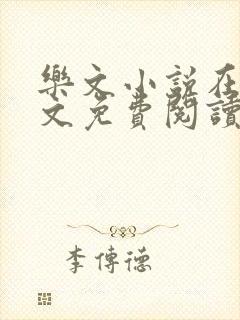 樂文小說在
文免費閱讀
李傳德